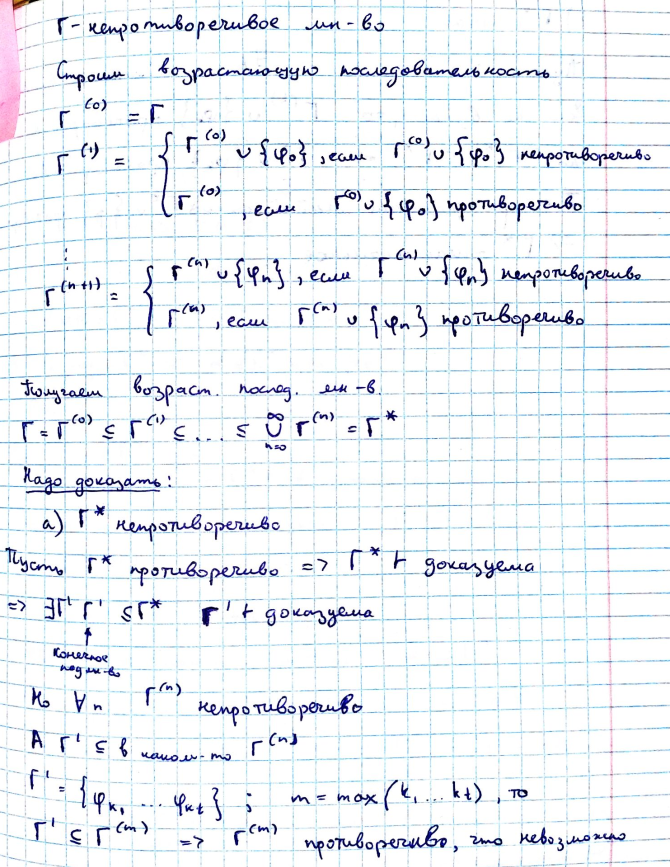 Γ - непротиворечивое мн-во
Строим возрастающую последовательность
Γ^(0) = Γ
Γ^(1) = { Γ^(0) ∪ {φ₀}, если Γ^(0) ∪ {φ₀} непротиворечиво
Γ^(0), если Γ^(0) ∪ {φ₀} противоречиво
⋮
Γ^(n+1) = { Γ^(n) ∪ {φₙ}, если Γ^(n) ∪ {φₙ} непротиворечиво
Γ^(n), если Γ^(n) ∪ {φₙ} противоречиво
Получаем возраст. послед. мн-в.
Γ = Γ^(0) ⊆ Γ^(1) ⊆ ... ⊆ ⋃_{n=0}^{∞} Γ^(n) = Γ*
Надо доказать:
а) Γ* непротиворечиво
Пусть Γ* противоречиво => Γ* ⊢ доказуема
=> ∃Γ' Γ' ⊆ Γ* Γ' ⊢ доказуема
↑
конечное
подмн-во
Но ∀n Γ^(n) непротиворечиво
А Γ' ⊆ в каком-то Γ^(n)
Γ' = {φ_k₁ ... φ_kt}; m = max(k₁ ... kt), то
Γ' ⊆ Γ^(m) => Γ^(m) противоречиво, что невозможно